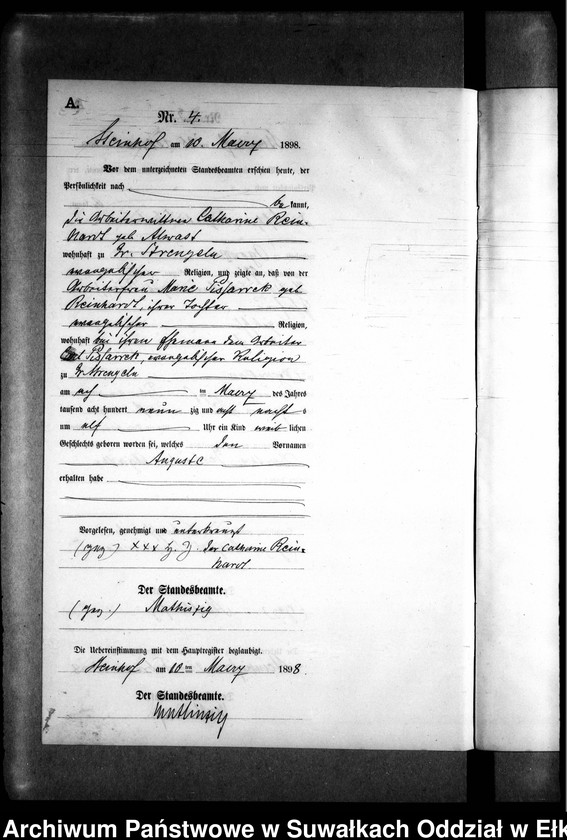 A.
Nr. 4.
Steinhof am 10. Maerz 1898.
Vor dem unterzeichneten Standesbeamten erschien heute, der
Persönlichkeit nach
be kannt,
die Arbeiterwittwe Catharine Rein-
hardt geb. Alwast
wohnhaft zu Gr. Strengeln
evangelischer Religion, und zeigte an, daß von der
Arbeiterfrau Marie Pissarrek geb
Reinhardt, ihrer Tochter
evangelischer Religion,
wohnhaft bei ihrem Ehemann dem Arbeiter
Carl Pissarrek, evangelischer Religion
zu Gr. Strengeln
am acht im Maerz des Jahres
tausend acht hundert neun zig und acht nachts
um elf Uhr ein Kind weib lichen
Geschlechts geboren worden sei, welches den Vornamen
Auguste
erhalten habe
Vorgelesen, genehmigt und unterkreuzt
(gez) xxx Hz. der Catharine Rein-
hardt
Der Standesbeamte.
(gez.) Mathiszig
Die Uebereinstimmung mit dem Hauptregister beglaubigt.
Steinhof am 10ten Maerz 1898
Der Standesbeamte.
Archiwum Państwowe w Suwałkach Oddział w Ełk